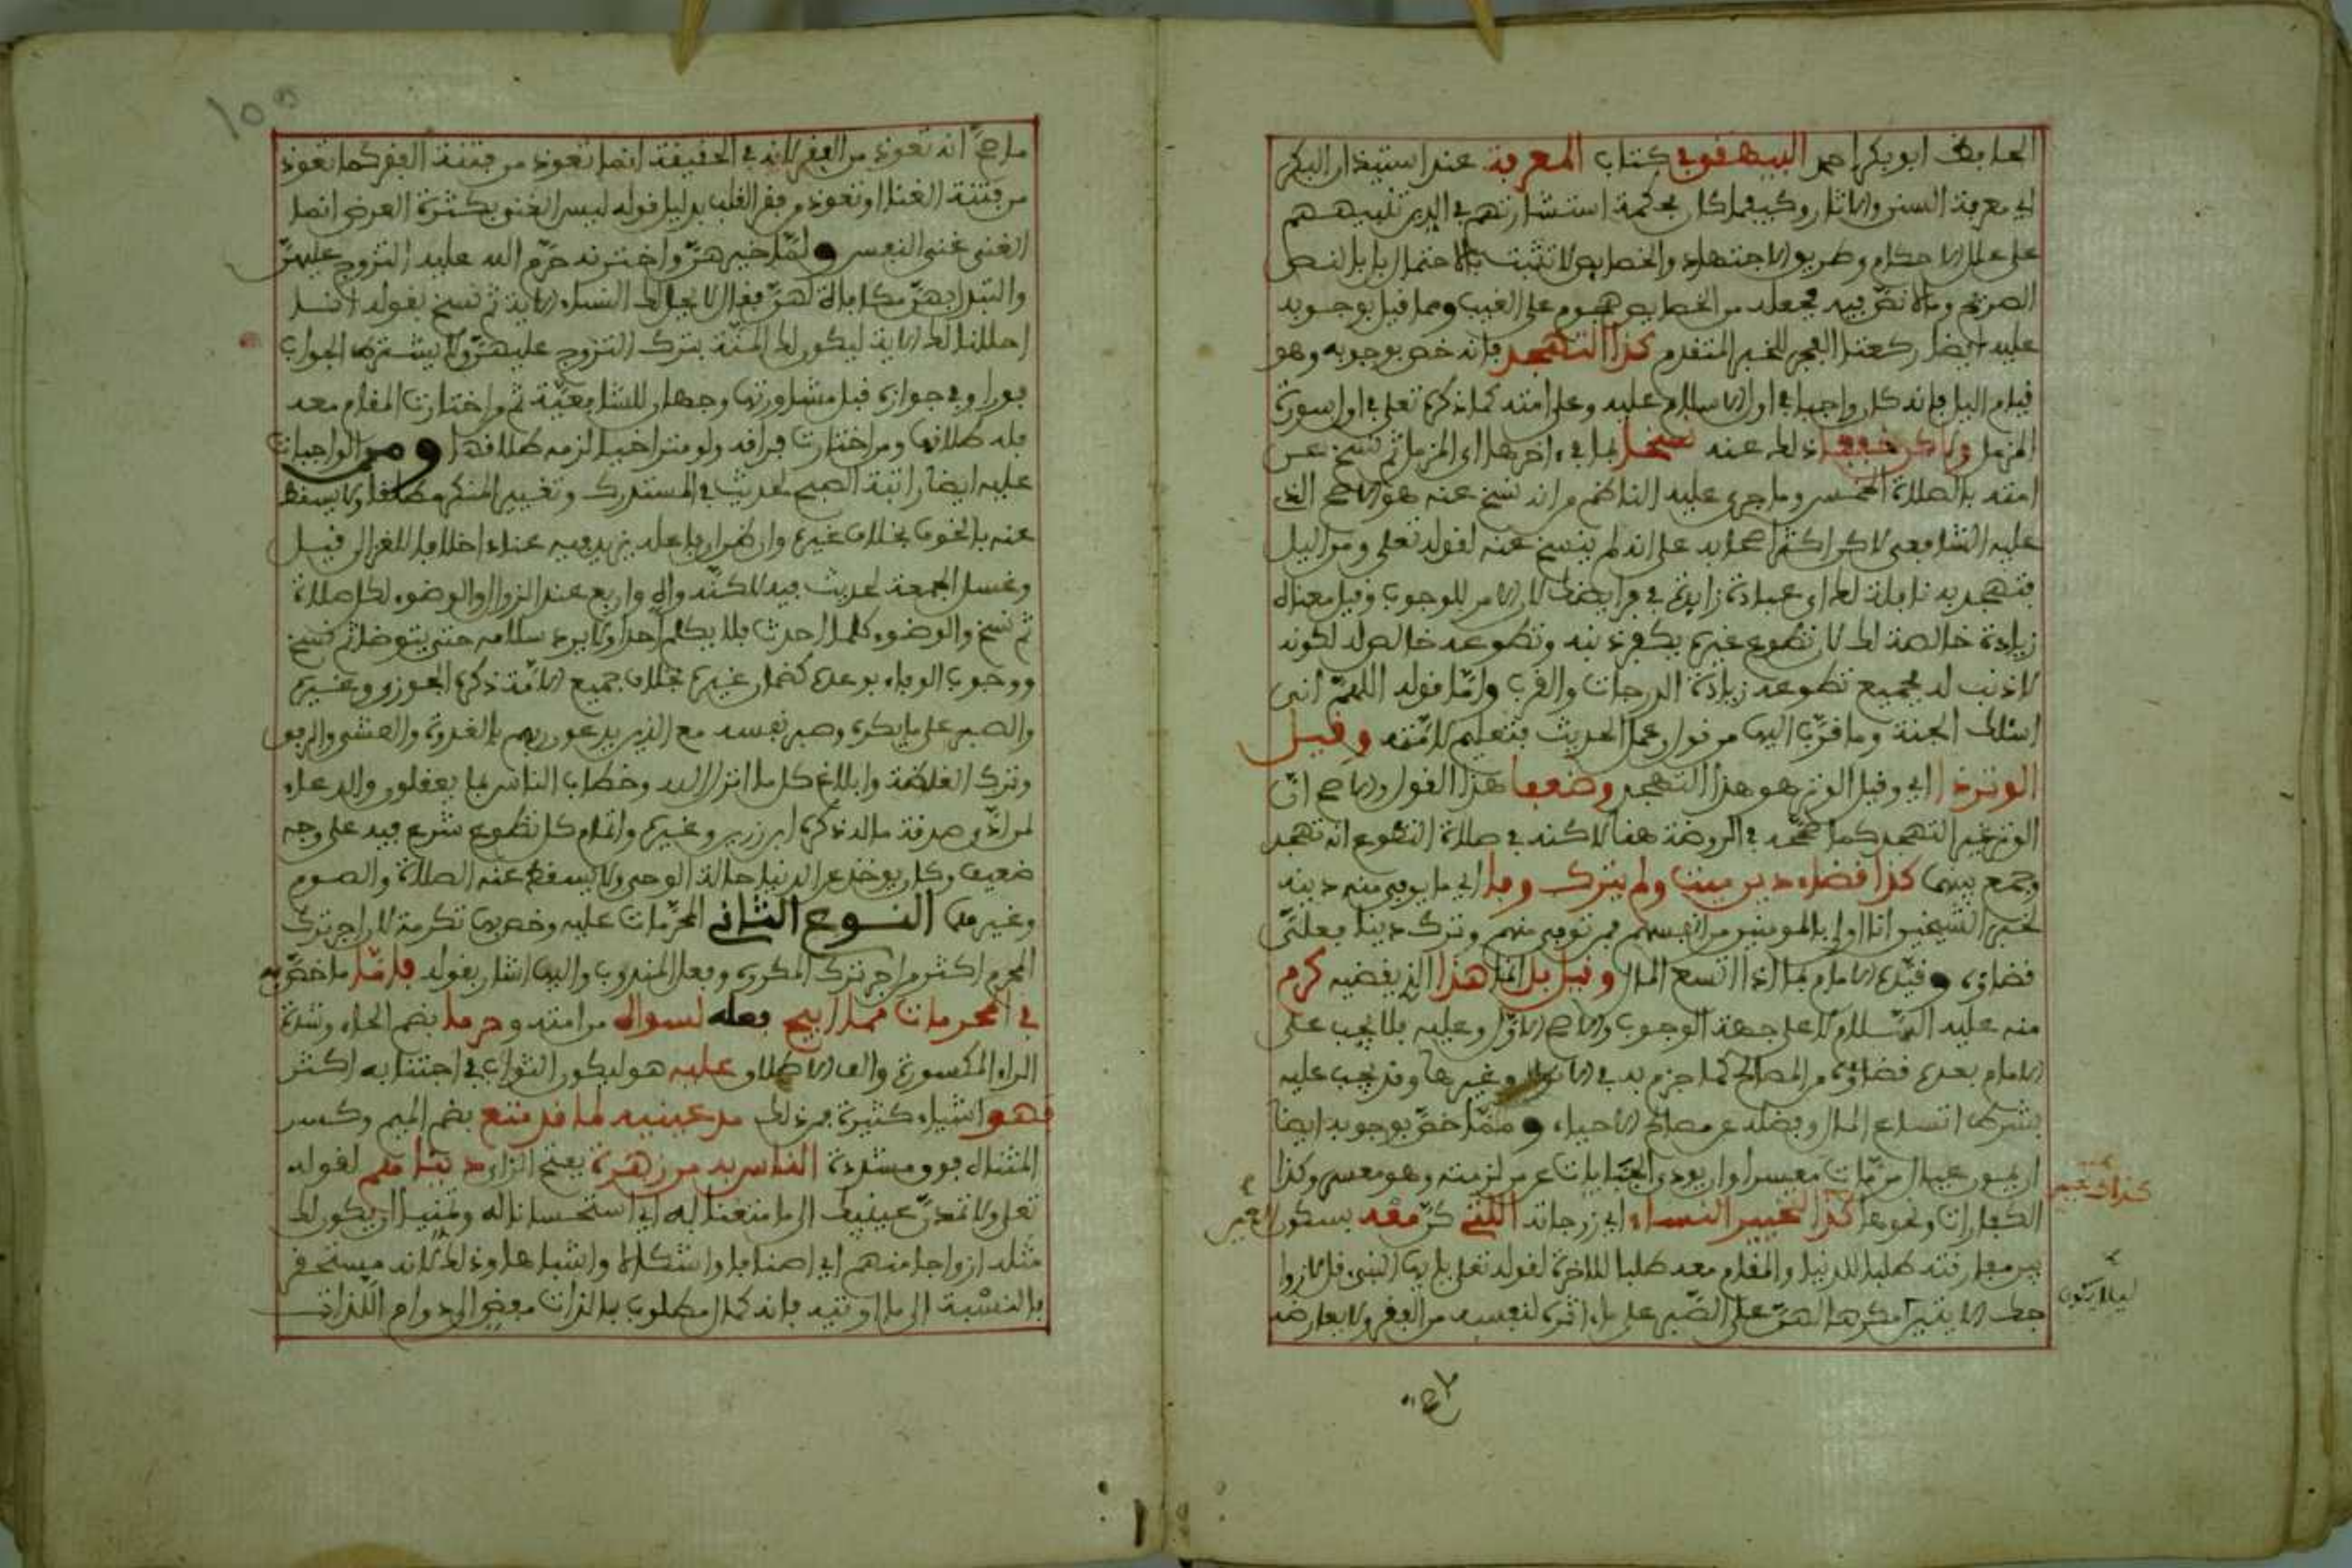 الحافظ ابو بكر احمد البيهقي في كتاب المعرفة عند استيذان البكر
الى معرفة السنن والاثار وكيفما كان فحكمة استشارتهم في الدين تنبيههم
على علل الاحكام وطريق الاجتهاد والخصايص لا تثبت بالاحتمال بل بالنص
الصريح وما لا نص فيه فجعله من الخصايص هجوم على الغيب ومما قيل بوجوبه
عليه ايضا ركعتا الفجر للخبر المتقدم كذا التهجد فانه خص بوجوبه وهو
قيام اليل فانه كان واجبا في اول الاسلام عليه وعلى امته كما ذكره تعلى في اول سورة
المزمل ولاكن خففا ذلك عنه نسخا بما في ءاخرها اي المزمل ثم نسخ عن
امته بالصلاة الخمس وما جرى عليه الناظم من انه نسخ عنه هو الاصح الذي
عليه الشافعي لاكن اكثر اصحابه على انه لم ينسخ عنه لقوله تعلى ومن اليل
فتهجد به نافلة لك اي عبادة زايدة في فرايضك لان الامر للوجوب وقيل معناه
زيادة خالصة لك لان تطوع غيره يكفر ذنبه وتطوعه خالص له لكونه
لا ذنب له فجميع تطوعه زيادة الدرجات والقرب واما قوله اللهم اني
اسئلك الجنة وما قرب اليها من قول وعمل الحديث فتعليم لامته وقيل
الوتر ذا اي وقيل الوتر هو هذا التهجد وضعفا هذا القول والاصح ان
الوتر غير التهجد كما صححه في الروضة هنا لاكنه في صلاة التطوع انه تهجد
وجمع بينها كذا قضاء دين ميت ولم يترك وفا اي ما يوفي منه دينه
لخبر الشيخين انا اولى بالمومنين من انفسهم فمن توفي منهم وترك دينا فعلي
قضاؤه وقيده الامام بما اذا اتسع المال وقيل بل انما هذا الذي يقضيه كرم
منه عليه السلام لا على جهة الوجوب والاصح الاول وعليه فلا يجب على
الامام بعده قضاؤه من المصالح كما جزم به في الانوار وغيرها وقد يجب عليه
بشرط اتساع المال وفضله عن مصالح الاحياء ومما خص بوجوبه ايضا
ان يمون عيال من مات معسرا وان يودي الجنايات عن من لزمته وهو معسر وكذا
الكفارات ونحوها كذا تخيير النساء اي زوجاته اللتي كن معه بسكون العين
بين مفارقته طلبا للدنيا والمقام معه طلبا للاخرة لقوله تعلى يايها النبي قل لازوا
جك الايتين مكرها لهن على الصبر على ما اثره لنفسه من الفقر ولا يعارضه
ليلا يكون
ما صح انه تعوذ من الفقر لانه في الحقيقة انما تعوذ من فتنة الفقر كما تعوذ
من فتنة الغنا او تعوذ من فقر القلب بدليل قوله ليس الغنى بكثرة العرض انما
الغنى غنى النفس ولما خيرهن واخترنه حرم الله عليه التزوج عليهن
والتبدل بهن مكافاة لهن فقال لا يحل لك النساء الاية ثم نسخ بقوله انا
احللنا لك الاية ليكون لك المنة بترك التزوج عليهن ولا يشترط الجواب
فورا وفي جوازه قبل مشاورتها وجهان للشافعية ثم من اختارت المقام معه
فله طلاقها ومن اختارت فراقه ولو متراخيا لزمه طلاقها ومن الواجبات
عليه ايضا راتبة الصبح لحديث في المستدرك وتغيير المنكر مطلقا ولا يسقط
عنه بالخوف بخلاف غيره وان ظن ان فاعله يزيد فيه عنادا خلافا للغزالي قيل
وغسل الجمعة لحديث فيه لاكنه واه واربع عند الزوال والوضوء لكل صلاة
ثم نسخ والوضوء كلما احدث فلا يكلم احدا ولا يرد سلامه حتى يتوضا ثم نسخ
ووجوب الوفاء بوعده كضمان غيره بخلاف جميع الامة ذكره الجوزي وغيره
والصبر على ما يكره وصبر نفسه مع الذين يدعون ربهم بالغدوة والعشي والرفق
وترك الغلظة وابلاغ كل ما انزل اليه وخطاب الناس بما يعقلون والدعاء
لمن ادى صدقة ماله ذكره ابن زرين وغيره واتمام كل تطوع شرع فيه على وجه
ضعيف وكان يوخذ عن الدنيا حالة الوحي ولا يسقط عنه الصلاة والصوم
وغيرها النوع الثاني المحرمات عليه وخص بها تكرمة لان اجر ترك
المحرم اكثر من اجر ترك المكروه وفعل المندوب واليها اشار بقوله فاما ما خص به
في المحرمات مما ابيح فعله لسواه من امته وحرما بضم الحاء وشدة
الراء المكسورة والف الاطلاق عليه هو ليكون الثواب في اجتنابه اكثر
فهو اشياء كثيرة فمن ذلك مد عينيه لما قد متع بضم الميم وكسر
المثناه فوق مشددة الناس به من زهرة بفتح الزاي دنياهم لقوله
تعلى ولا تمدن عينيك الى ما متعنا به اي استحسانا له وتمنيا ان يكون لك
مثله ازواجا منهم اي اصنافا واشكالا واشباها وذلك لانه مستحقر
بالنسبة الى ما اوتيه فانه كمال مطلوب بالذات مفض الى دوام اللذات